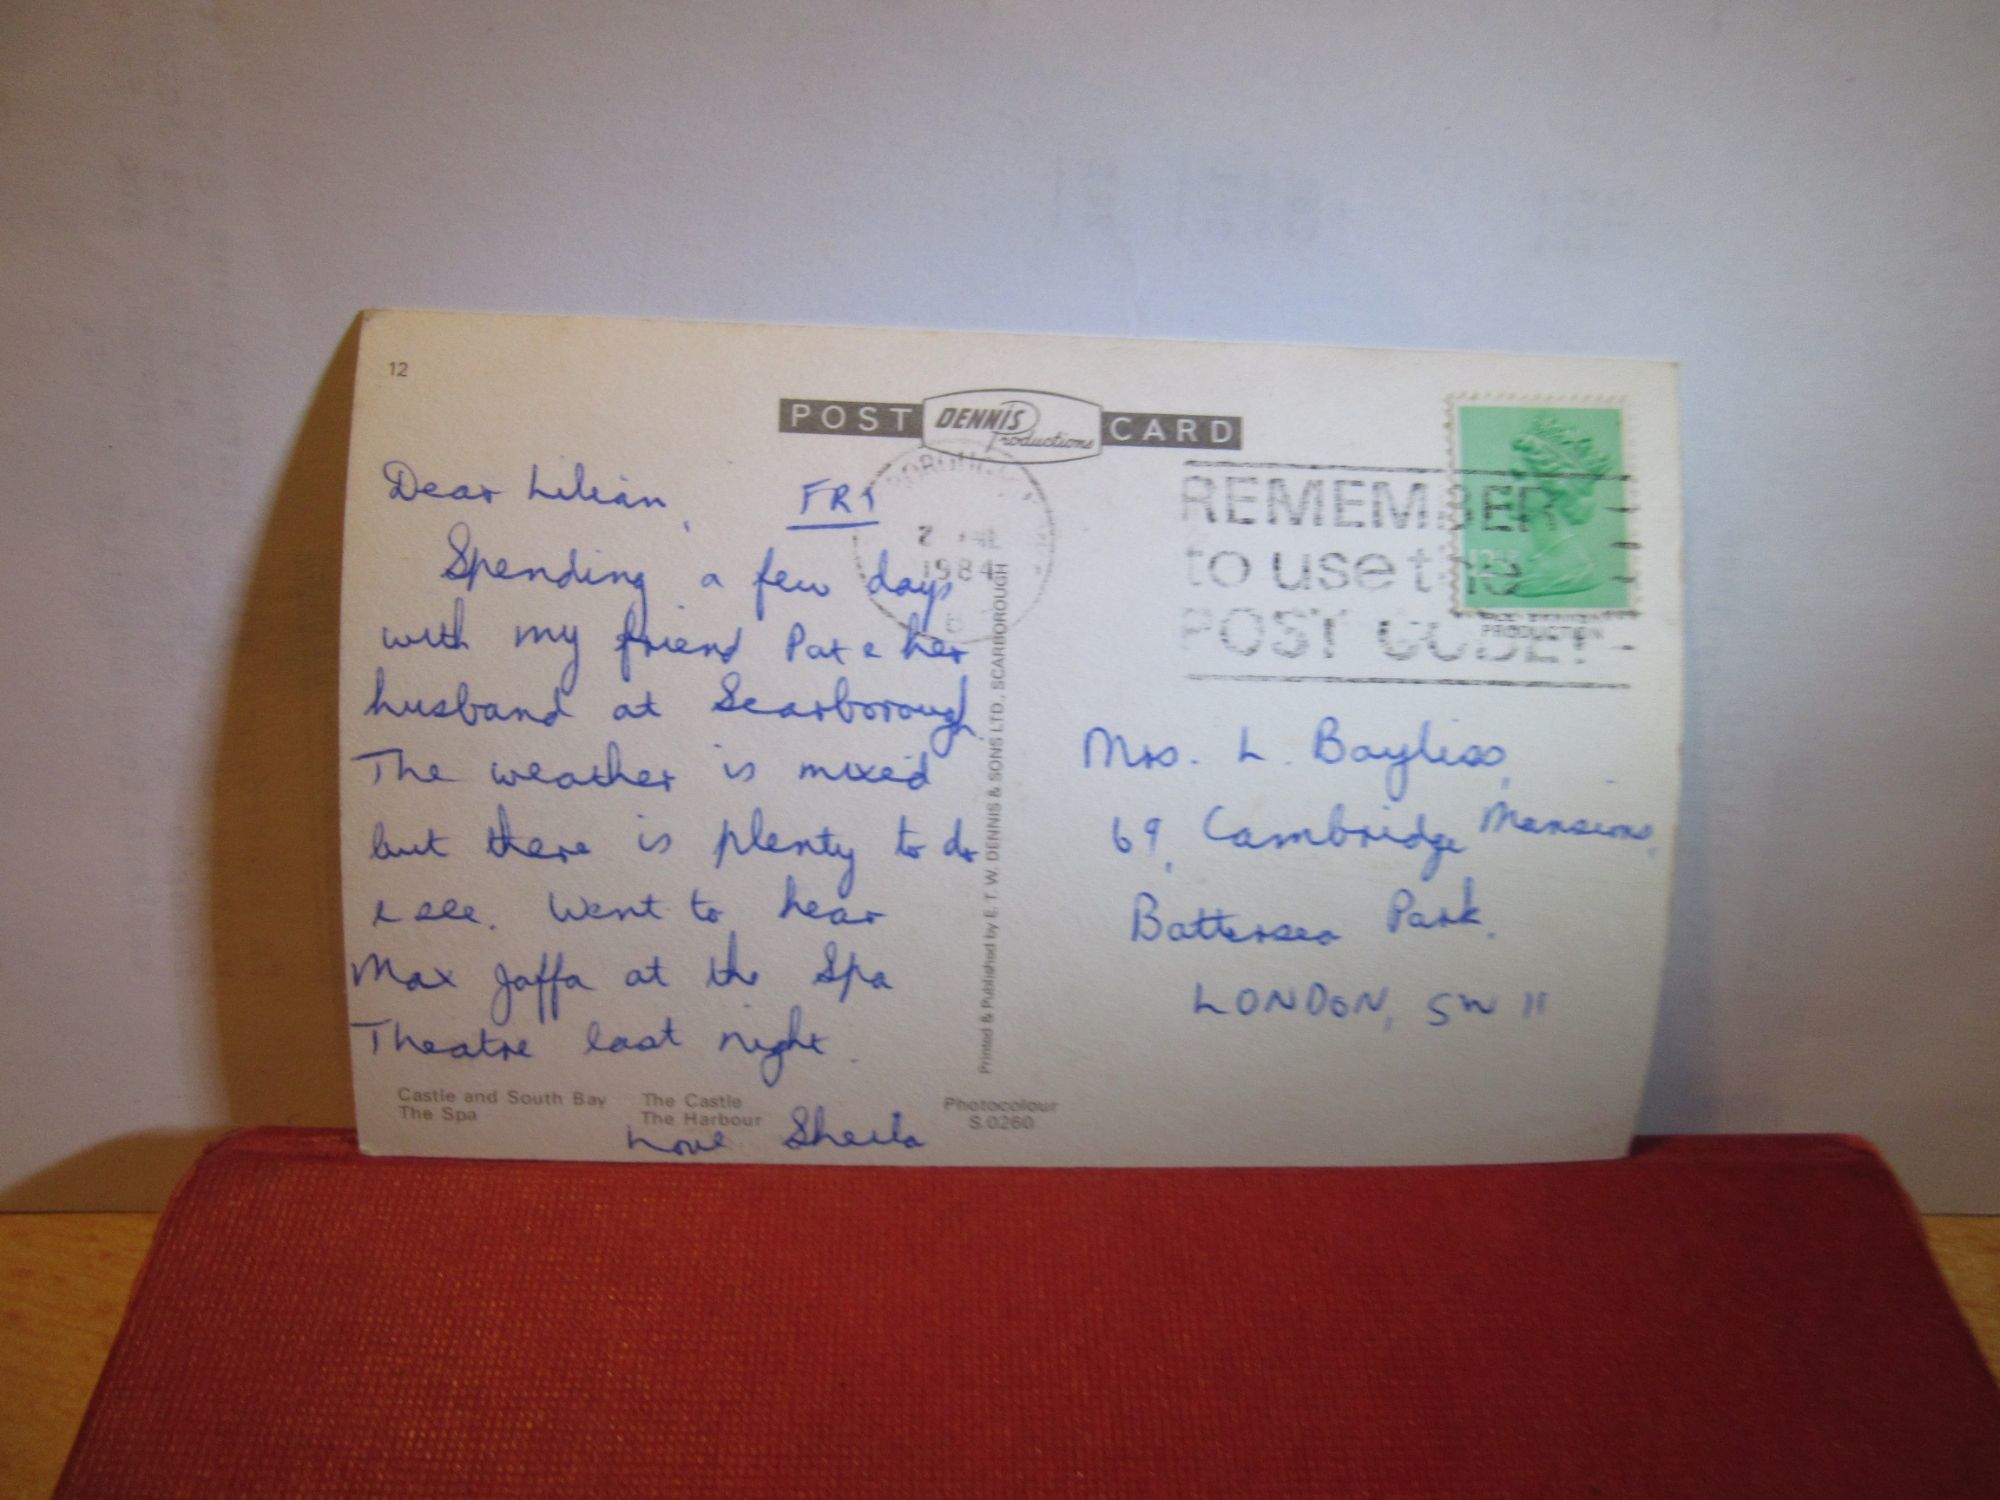 12
POST DENNIS Productions CARD
Dear Lilian, FRI
Spending a few days
with my friend Pat & her
husband at Scarborough.
The weather is mixed
but there is plenty to do
& see. Went to hear
Max Jaffa at the Spa
Theatre last night.
Love Sheila
Castle and South Bay The Castle
The Spa The Harbour
Photocolour
S.0260
Printed & Published by E. T. W. DENNIS & SONS LTD., SCARBOROUGH
1984
REMEMBER
to use the
POST CODE!
PRODUCTION
Mrs. L. Bayliss,
69, Cambridge Mansions,
Battersea Park.
LONDON, SW 11